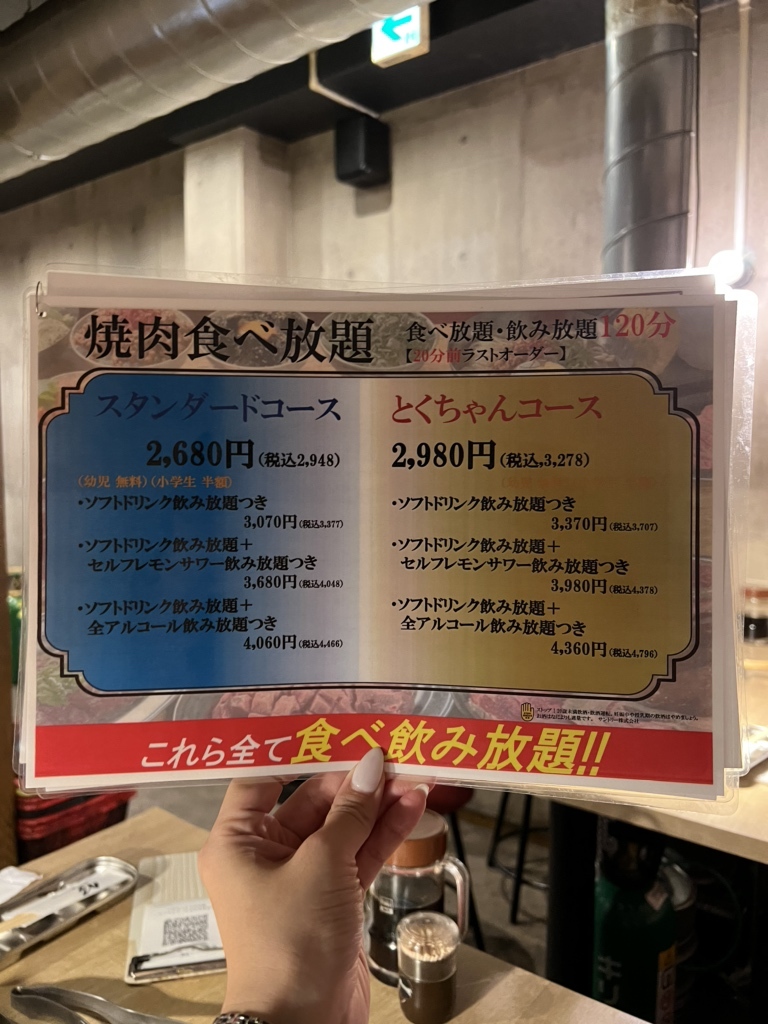 焼肉食べ放題
食べ放題・飲み放題120分
【20分前ラストオーダー】
スタンダードコース
2,680円(税込2,948)
(幼児 無料)(小学生 半額)
・ソフトドリンク飲み放題つき
3,070円(税込3,377)
・ソフトドリンク飲み放題＋
セルフレモンサワー飲み放題つき
3,680円(税込4,048)
・ソフトドリンク飲み放題＋
全アルコール飲み放題つき
4,060円(税込4,466)
とくちゃんコース
2,980円(税込,3,278)
・ソフトドリンク飲み放題つき
3,370円(税込3,707)
・ソフトドリンク飲み放題＋
セルフレモンサワー飲み放題つき
3,980円(税込4,378)
・ソフトドリンク飲み放題＋
全アルコール飲み放題つき
4,360円(税込4,796)
これら全て食べ飲み放題!!
キリン